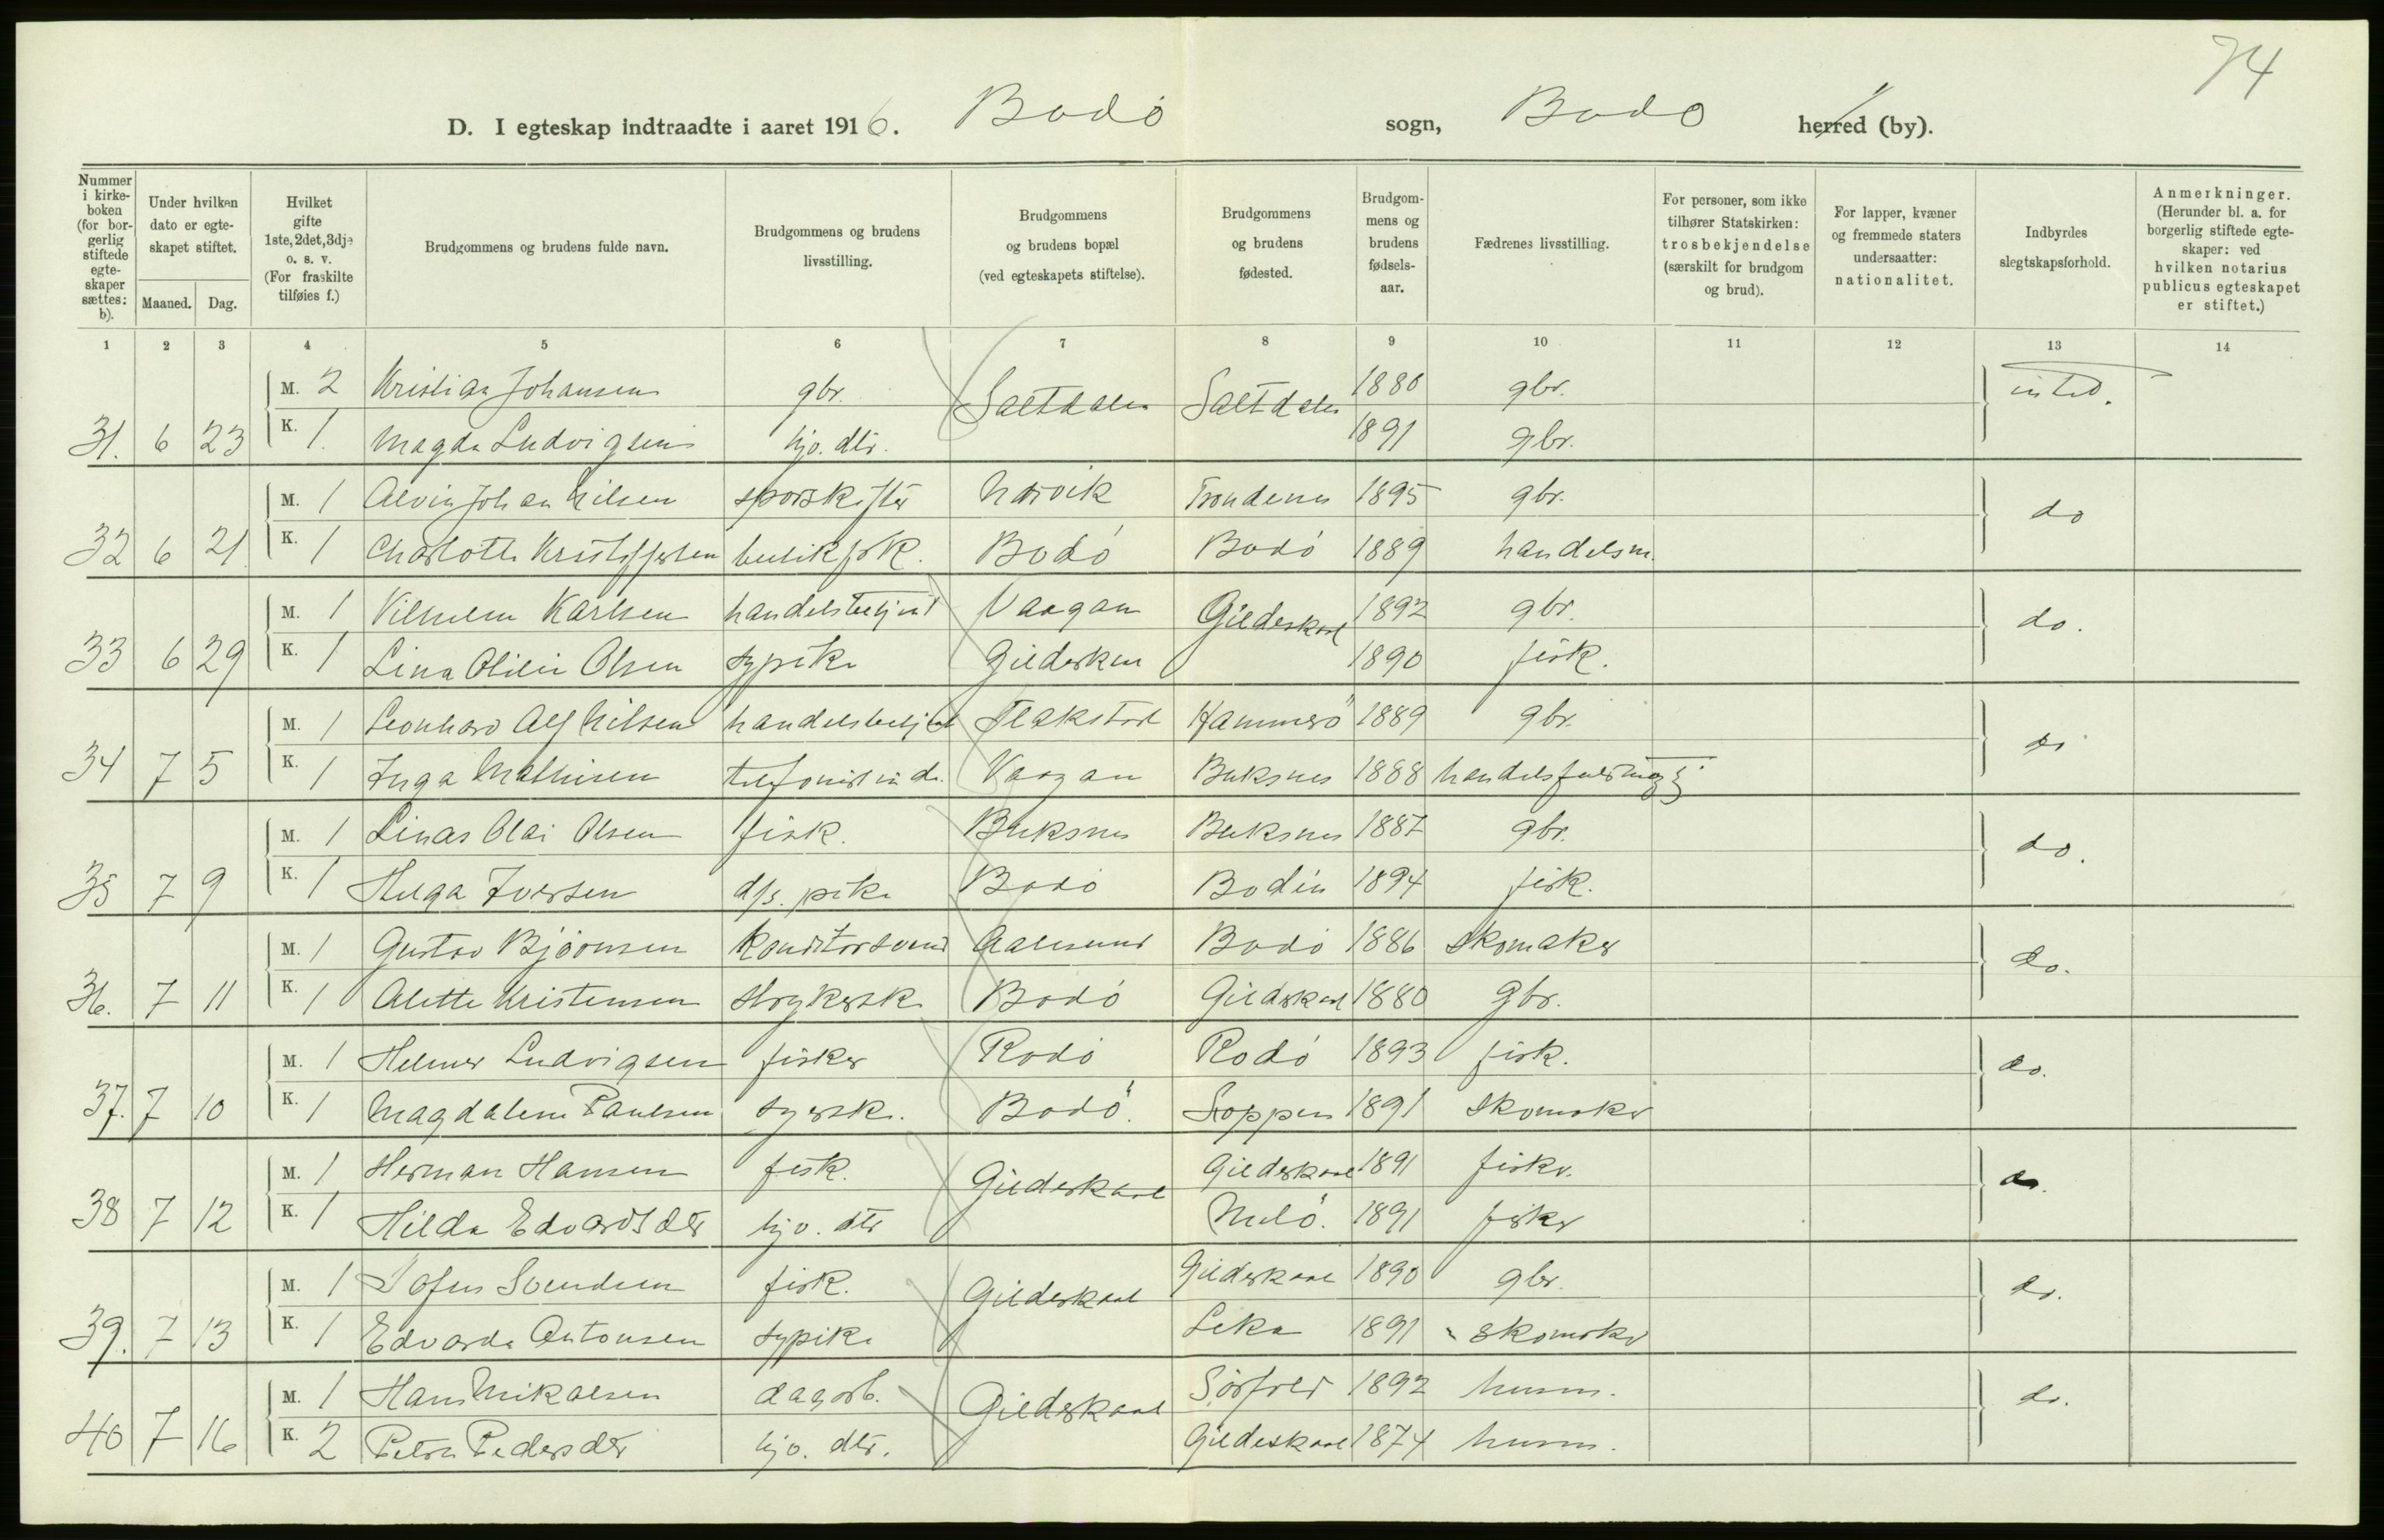 74
D. I egteskap indtraadte i aaret 1916. Bodö sogn, Bodö herred (by).
Nummer i kirkeboken (for borgerlig stiftede egteskaper sættes: b).
Under hvilken dato er egteskapet stiftet.
Maaned. Dag.
Hvilket gifte 1ste, 2det, 3dje o. s. v. (For fraskilte tilføies f.)
Brudgommens og brudens fulde navn.
Brudgommens og brudens livsstilling.
Brudgommens og brudens bopæl (ved egteskapets stiftelse).
Brudgommens og brudens fødested.
Brudgommens og brudens fødselsaar.
Fædrenes livsstilling.
For personer, som ikke tilhører Statskirken: trosbekjendelse (særskilt for brudgom og brud).
For lapper, kvæner og fremmede staters undersaatter: nationalitet.
Indbyrdes slegtskapsforhold.
Anmerkninger. (Herunder bl. a. for borgerlig stiftede egteskaper: ved hvilken notarius publicus egteskapet er stiftet.)
1 2 3 4 5 6 7 8 9 10 11 12 13 14
M. 2 Kristian Johansen gbr. Saltdalen Saltdalen 1880 gbr. intet.
31. 6 23 K. 1. Magda Ludvigsen hjv. dtr. 1891 gbr.
M. 1 Alvin Johan Nilsen sporskifter Narvik Trondenes 1895 gbr. do
32 6 21 K. 1 Charlotte Kristoffersen butikfrk. Bodö Bodö 1889 handelsm.
M. 1 Vilhelm Karlsen handelsbetjent Vaagan Gildeskaal 1892 gbr. do.
33 6 29 K. 1 Lina Olsen sypike Gildeskaal 1890 fisk.
M. 1 Leonhard Alf Nilsen handelsbetjent Flakstad Hammerö 1889 gbr. do
34 7 5 K. 1 Inga Mathisen telefonistinde Vaagan Buksnes 1888
M. 1 Linas Olai Olsen fisk. Buksnes Buksnes 1887 gbr. do.
35 7 9 K. 1 Helga Iversen pike Bodö Bodin 1894 fisk.
M. 1 Gustav Björnsen Konditorsvend Aalesund Bodö 1886 skomaker do.
36. 7 11 K. 1 Alette Kristensen strykersk. Bodö Gildeskaal 1880 gbr.
M. 1 Helmer Ludvigsen fisker Rodö Rodö 1893 fisk. do.
37. 7 10 K. 1 Magdalene Paulsen syersk. Bodö. Loppen 1891 skomaker
M. 1 Herman Hansen fisk. Gildeskaal Gildeskaal 1891 fisker. do.
38 7 12 K. 1 Hilda Edvardsdtr hjv. dtr Melö. 1891 fisker
M. 1 Tofus Svendsen fisk. Gildeskaal Gildeskaal 1890 gbr. do.
39. 7 13 K. 1 Edvarda Antonsen sypike Leka 1891 skomaker
M. 1 Hans Mikalsen dagarb. Gildeskaal Sörfold 1892 husm. do.
40 7 16 K. 2 Petra Pedersdtr hjv. dtr. Gildeskaal 1874 husm.